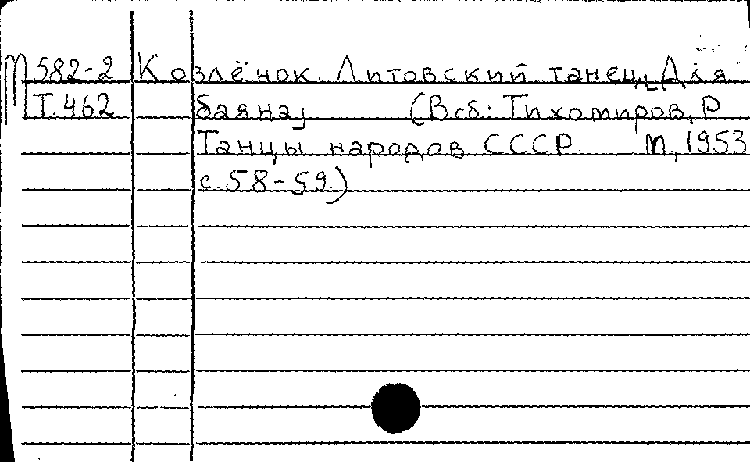 М 582-2 Козлёнок. Литовский танец. [Для
Т.462 баяна] (В сб: Тихомиров, Р
Танцы народов СССР М, 1953
с. 58-59)